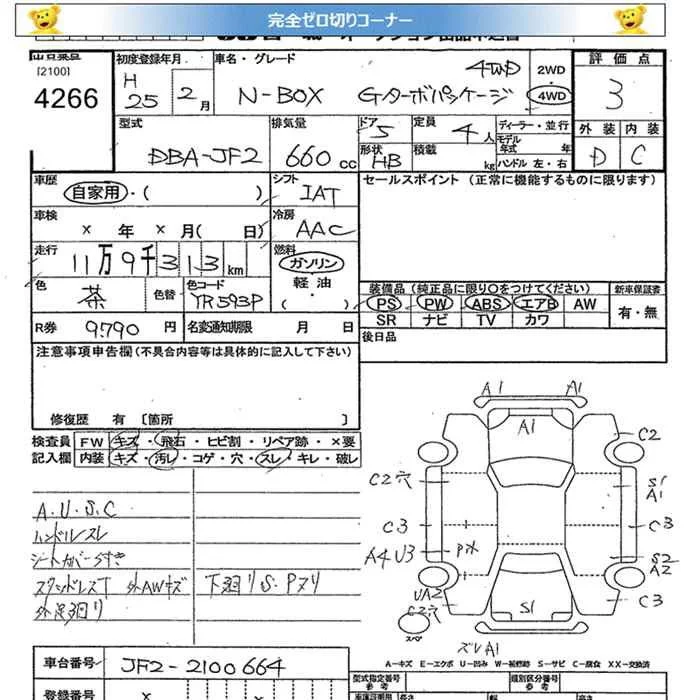 完全ゼロ切りコーナー
[2100]
4266
初度登録年月
H 25 2月
車名・グレード
N-BOX Gターボパッケージ 4WD
2WD
4WD
評価点
3
型式
DBA-JF2
排気量
660 cc
ドア 5
形状 HB
定員 4人
積載 kg
ディーラー・並行
モデル年式 年
ハンドル 左・右
外装 内装
D C
車歴
自家用・( )
シフト
IAT
セールスポイント (正常に機能するものに限ります)
車検
× 年 × 月( 日)
冷房
AAC
走行
11万9千313km
燃料
ガソリン
軽油・
( )
色
茶
色替
色コード
YR593P
装備品(純正品に限り○をつけてください)
新車保証書
PS PW ABS エアB AW
有・無
SR ナビ TV カワ
R券 9790 円
名変通知期限 月 日
後日品
注意事項申告欄(不具合内容等は具体的に記入して下さい)
修復歴 有 [箇所 ]
検査員 FW キズ・飛石・ヒビ割・リペア跡・×要
記入欄 内装 キズ・汚レ・コゲ・穴・スレ・キレ・破レ
A.U.S.C
ハンドルスレ
シートカバーうすき
スタッドレスT 外AWキズ 下廻りS.Pヌリ
外足廻り
A1 A1
A1
C2
C2穴
S1
A1
C3
C3
A4 U3
S2
A2
UA2
C2穴
S1
C3
スペ
ズレA1
A-キズ E-エクボ U-凹み W-補修跡 S-サビ C-腐食 XX-交換済
車台番号 JF2-2100664
登録番号 ×
型式指定番号
参考
類別区分番号
参考